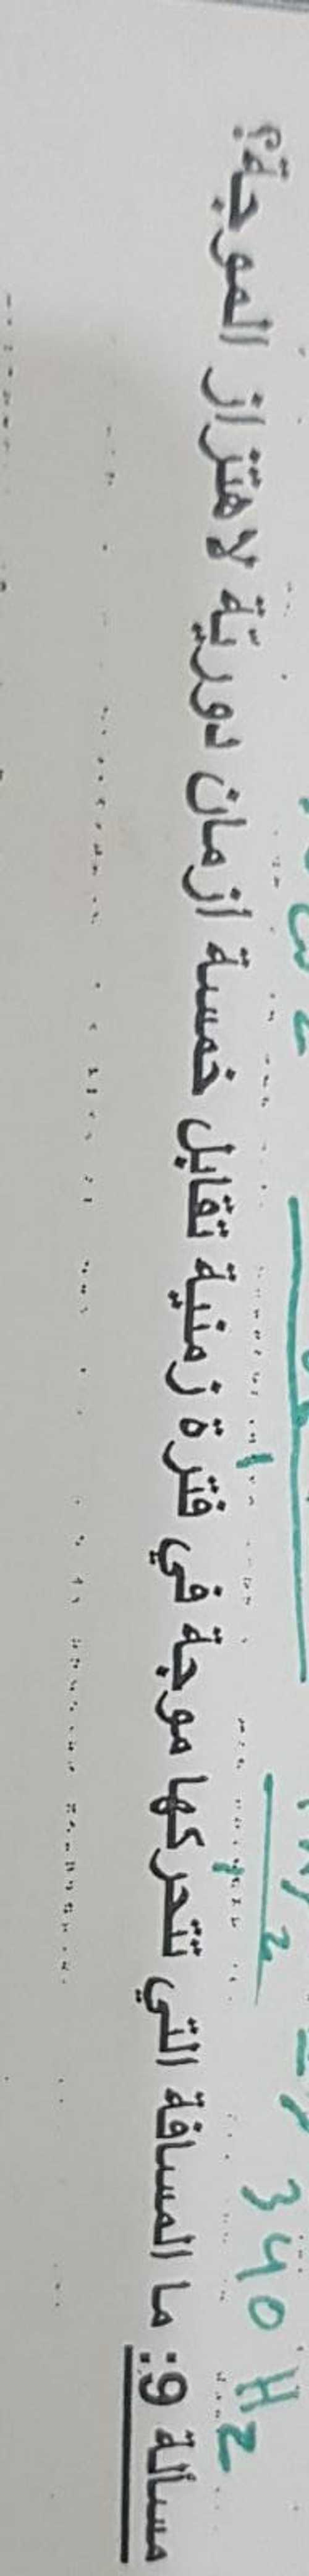 340 Hz
مسألة 9: ما المسافة التي تتحركها موجة في فترة زمنية تقابل خمسة ازمان دورية لاهتزاز الموجة؟